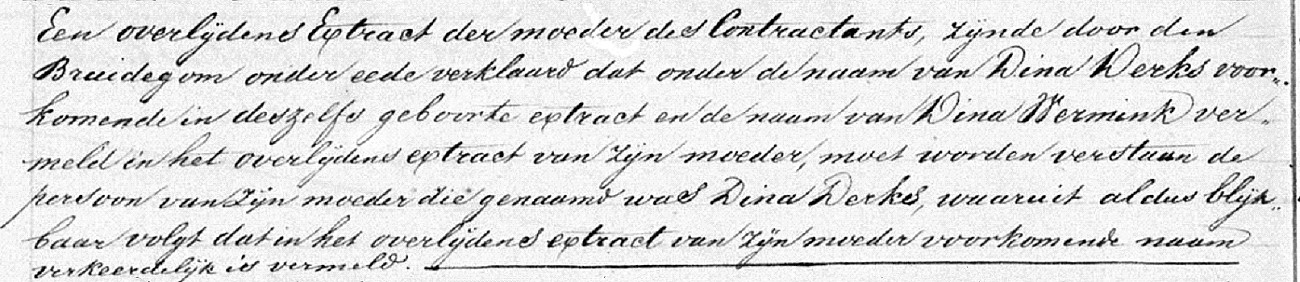 Een overlijdens Extract der moeder des Contractants, zijnde door den
Bruidegom onder eede verklaard dat onder de naam van Dina Derks voor„
komende in deszelfs geboorte extract en de naam van Dina Wermink ver„
meld in het overlijdens extract van zijn moeder, moet worden verstaan de
persoon van zijn moeder die genaamd was Dina Derks, waaruit aldus blijk„
baar volgt dat in het overlijdens extract van zijn moeder voorkomende naam
verkeerdelijk is vermeld.